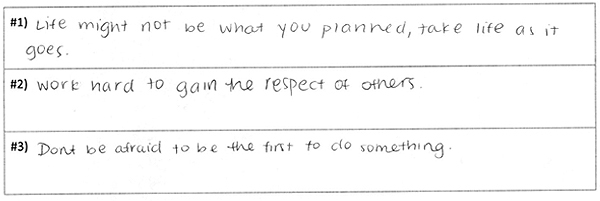 #1) Life might not be what you planned, take life as it
goes.
#2) work hard to gain the respect of others.
#3) Dont be afraid to be the first to do something.